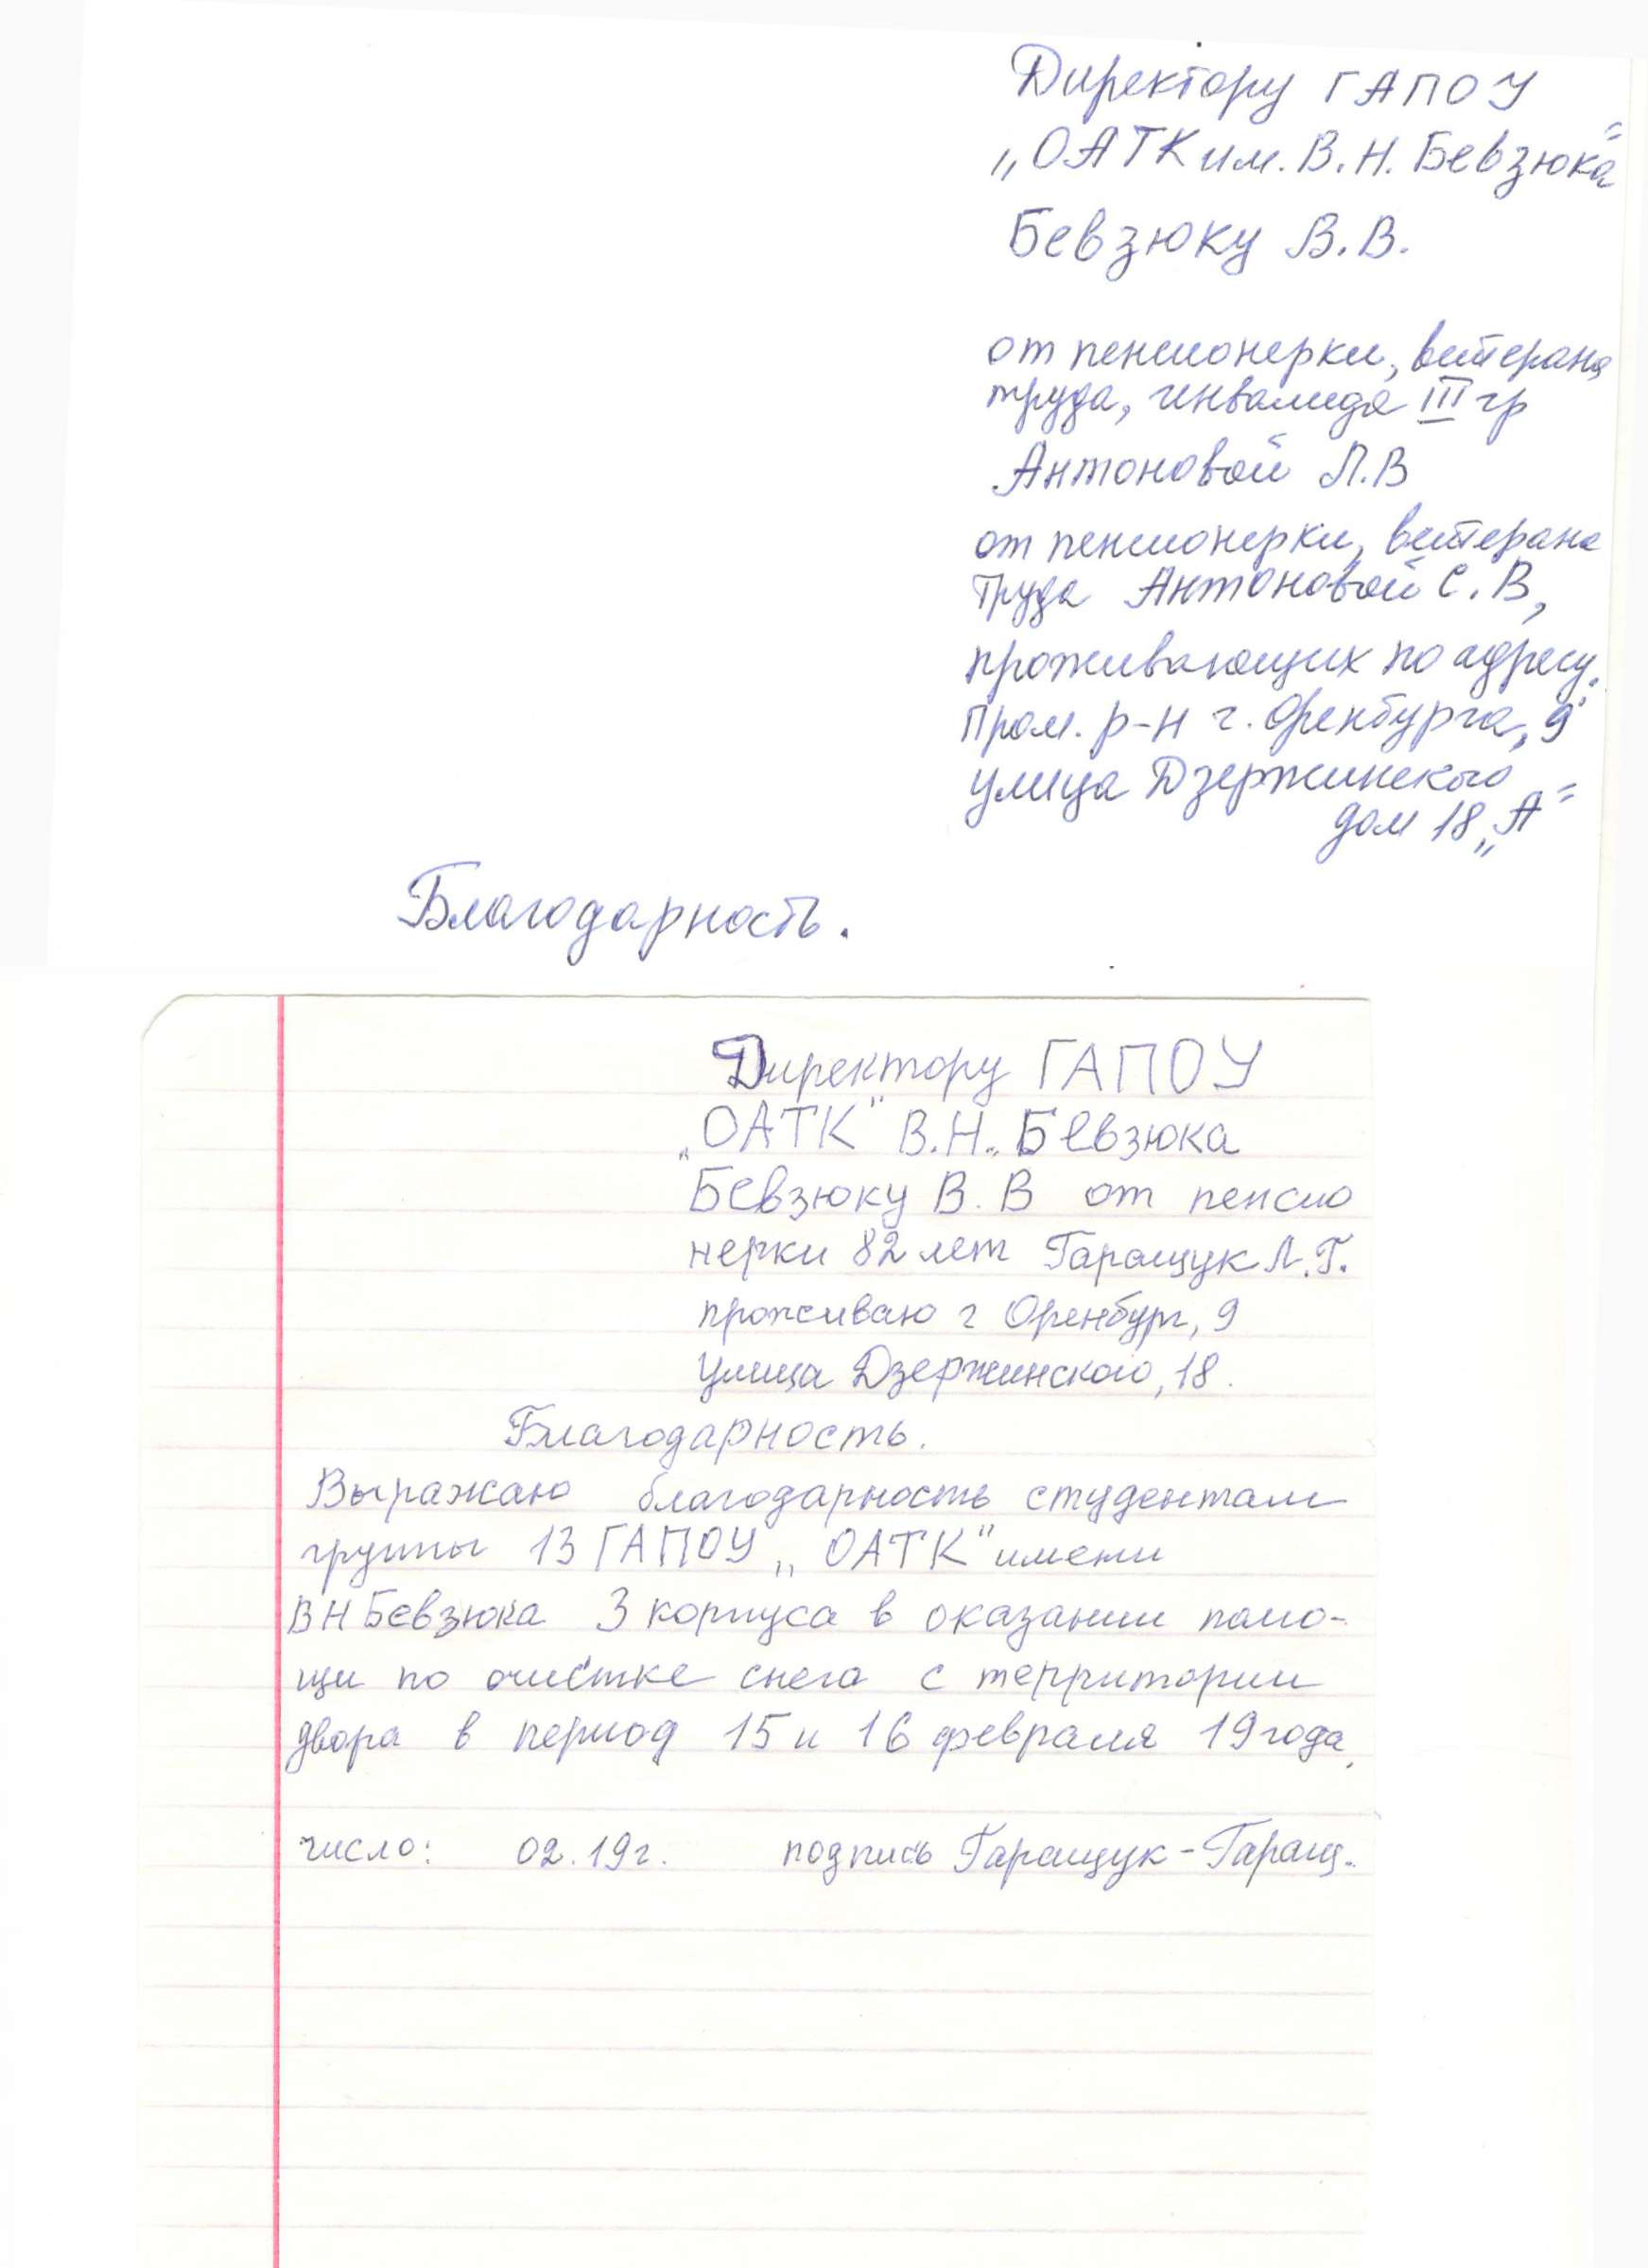 Директору ГАПОУ
„ОАТК им. В.Н. Бевзюка"
Бевзюку В.В.
от пенсионерки, ветерана
труда, инвалида III гр
Антоновой Л.В
от пенсионерки, ветерана
Труда Антоновой С.В,
проживающих по адресу:
Пром. р-н г. Оренбурга, 9
улица Дзержинского
дом 18 „А"
Благодарность.
Директору ГАПОУ
„ОАТК" В.Н. Бевзюка
Бевзюку В.В от пенсио
нерки 82 лет Гаращук Л.Г.
проживаю г Оренбург, 9
Улица Дзержинского, 18.
Благодарность.
Выражаю благодарность студентам
группы 13 ГАПОУ „ОАТК" имени
ВН Бевзюка 3 корпуса в оказании помо-
щи по очистке снега с территории
двора в период 15 и 16 февраля 19 года.
число: 02.19г. подпись Гаращук - Гаращ.